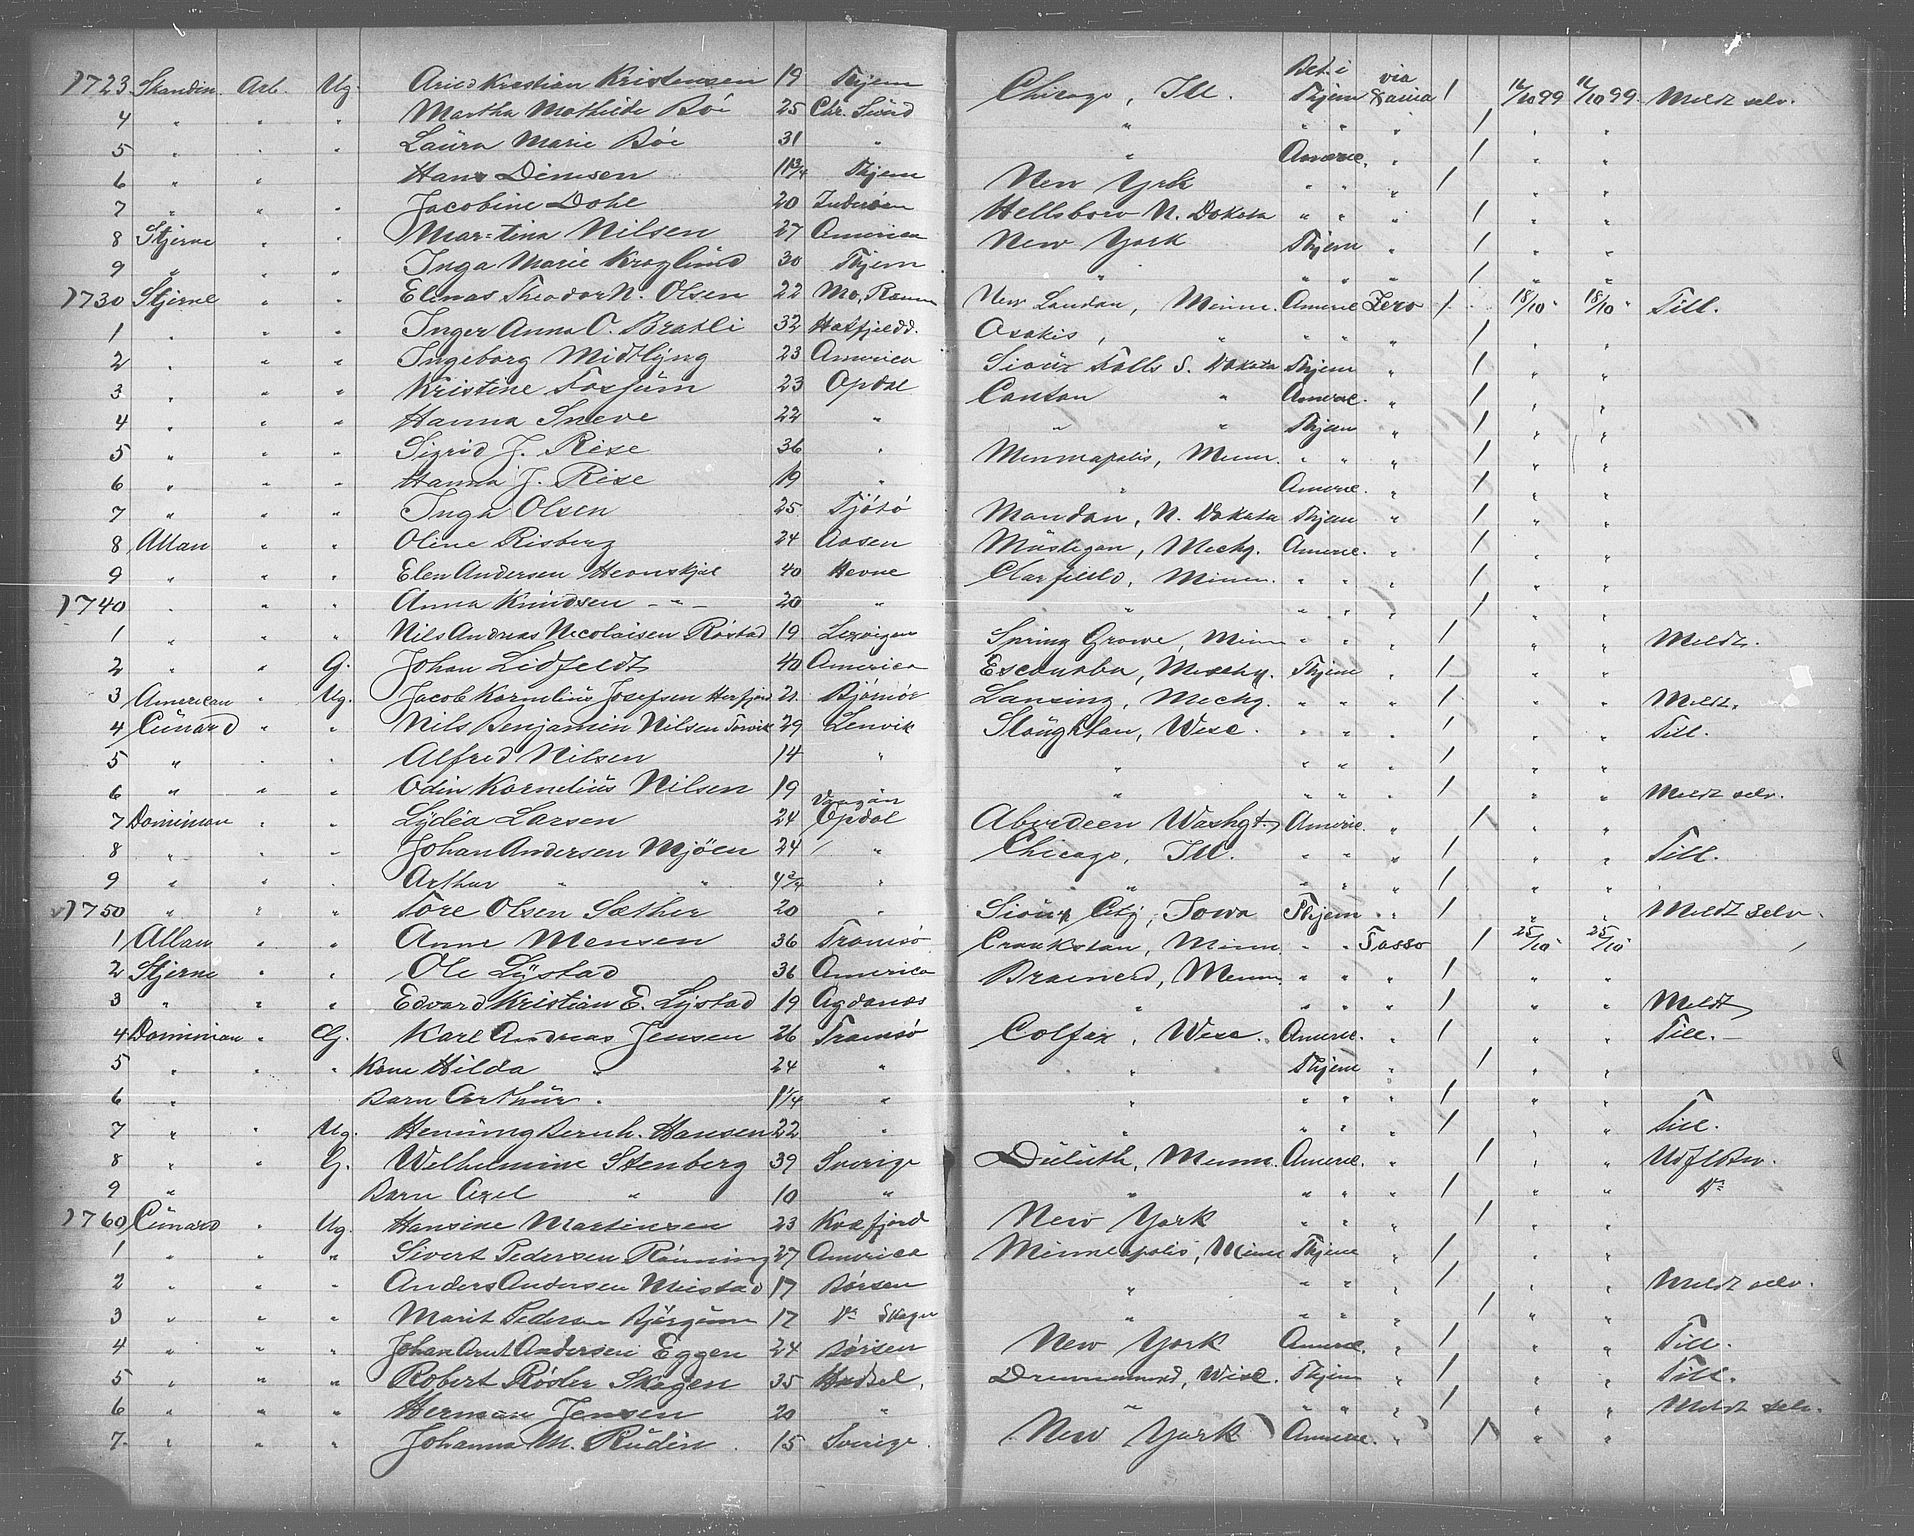 1723 Skandin. Arb. Ug. Arild Kristian Kristensen 19 Thjem Chicago, Ill. Bet. i Thjem via Tasso / 11/10 99 11/10 99 Meldt selv.
4 " " " Martha Mathilde Böe 25 Chr. Sund " " " " / " "
5 " " " Laura Marie Böe 31 " " Americ. " / " "
6 " " " Hans Denisen 11 3/4 Thjem New York " " " / " "
7 " " " Jacobine Dahl 20 Inderöen Hellsboro N. Dakota " " " / " "
8 Stjerne " " Martina Nilsen 27 America New York Thjem " / " "
9 " " " Inga Marie Kroglund 30 Thjem " " " " / " "
1730 Stjerne " " Elenas Theodor N. Olsen 22 Mo, Ranen New London, Minn. Americ Zero / 18/10 " 18/10 " Till.
1 " " " Inger Anna O. Bratli 32 Hatfjeldd. Osakis, " " " " / " "
2 " " " Ingeborg Midtlyng 23 America Sioux Falls S. Dakota Thjem " / " "
3 " " " Kristine Fosjum 23 Opdal Canton " Americ. " / " "
4 " " " Hanna Sneve 22 " " " Thjem " / " "
5 " " " Sigrid J. Rise 36 " Minneapolis, Minn. " " " / " "
6 " " " Hanna J. Rise 19 " " Americ. " / " "
7 " " " Inga Olsen 25 Tjötö Mandan, N. Dakota Thjem " / " "
8 Allan " " Oline Risberg 24 Aasen Muskegan, Mechg. Americ. " / " "
9 " " " Elen Andersen Hevnskjel 40 Hevne Clarfield, Minn. " " " / " "
1740 " " " Anna Knudsen - " - 20 " " " " " / " "
1 " " " Nils Andreas Nicolaisen Röstad 19 Lexvigen Spring Growe, Minn " " " / " " Meldt.
2 " " G. Johan Lidfeldt 40 America Escanaba, Mechg. Thjem " / " "
3 American " Ug. Jacob Kornelius Josefsen Herfjord 21 Björnör Lansing, Mechg. " " " / " " Meldt.
4 Cunard " " Nils Benjamin Nilsen Torvik 29 Lenvik Stoughton, Wisc. " " " / " " Till.
5 " " " Alfred Nilsen 14 " " " " " / " "
6 " " " Odin Kornelius Nilsen 19 " " " " " / " " Meldt selv.
7 Dominion " " Lydia Larsen 24 Vaagan Opdal Aberdeen Washgt. Americ. " / " "
8 " " " Johan Andersen Mjöen 24 / " Chicago, Ill. " " " / " " Till.
9 " " " Arthur " " 4 2/4 " " " " " / " "
1750 " " " Tore Olsen Sæther 20 " Sioux City, Iowa Thjem " " / " " Meldt selv.
1 Allan " " Anne Monsen 36 Tromsö Crookstan, Minn. " " Tasso / 25/10 " 25/10 "
2 Stjerne " " Ole Lystad 36 America Brainerd, Minn. " " " / " "
3 " " " Edvard Kristian E. Lystad 19 Agdanæs " " " " / " " Meldt
4 Dominion " G. Karl Andreas Jensen 26 Tromsö Colfax, Wisc. Americ. " / " " Till.
5 " " " Kone Hilda " 24 " " Thjem " / " "
6 " Barn Arthur " 1 1/4 " " " " " / " "
7 " " Ug. Henning Bernh. Hansen 22 " " " " " / " " Till.
8 " " G. Wilhelmine Stenberg 39 Sverige Duluth, Minn. Americ. " / " " Udflttbv.
9 " Barn Axel " 10 " " " " " / " " Do
1760 Cunard " Ug. Hansine Martinsen 23 Kvæfjord New York " " " / " "
1 " " " Sivert Pedersen Rönning 27 America Minneapolis, Minn Thjem " / " "
2 " " " Anders Andersen Mustad 17 Börsen " " " " / " " Meldt selv.
3 " " " Marit Pedersen Björgum 17 Do Skogn " " " " / " "
4 " " " Johan Arnt Andersen Eggen 24 Börsen New York Americ. " / " " Till.
5 " " " Robert Röder Skagen 35 Hadsel. Drummond, Wisc. Thjem " / " " Till.
6 " " " Herman Jensen 20 " " " " " / " " Meldt selv.
7 " " " Johanna M. Rudin 15 Sverige. New York Americ. " / " "